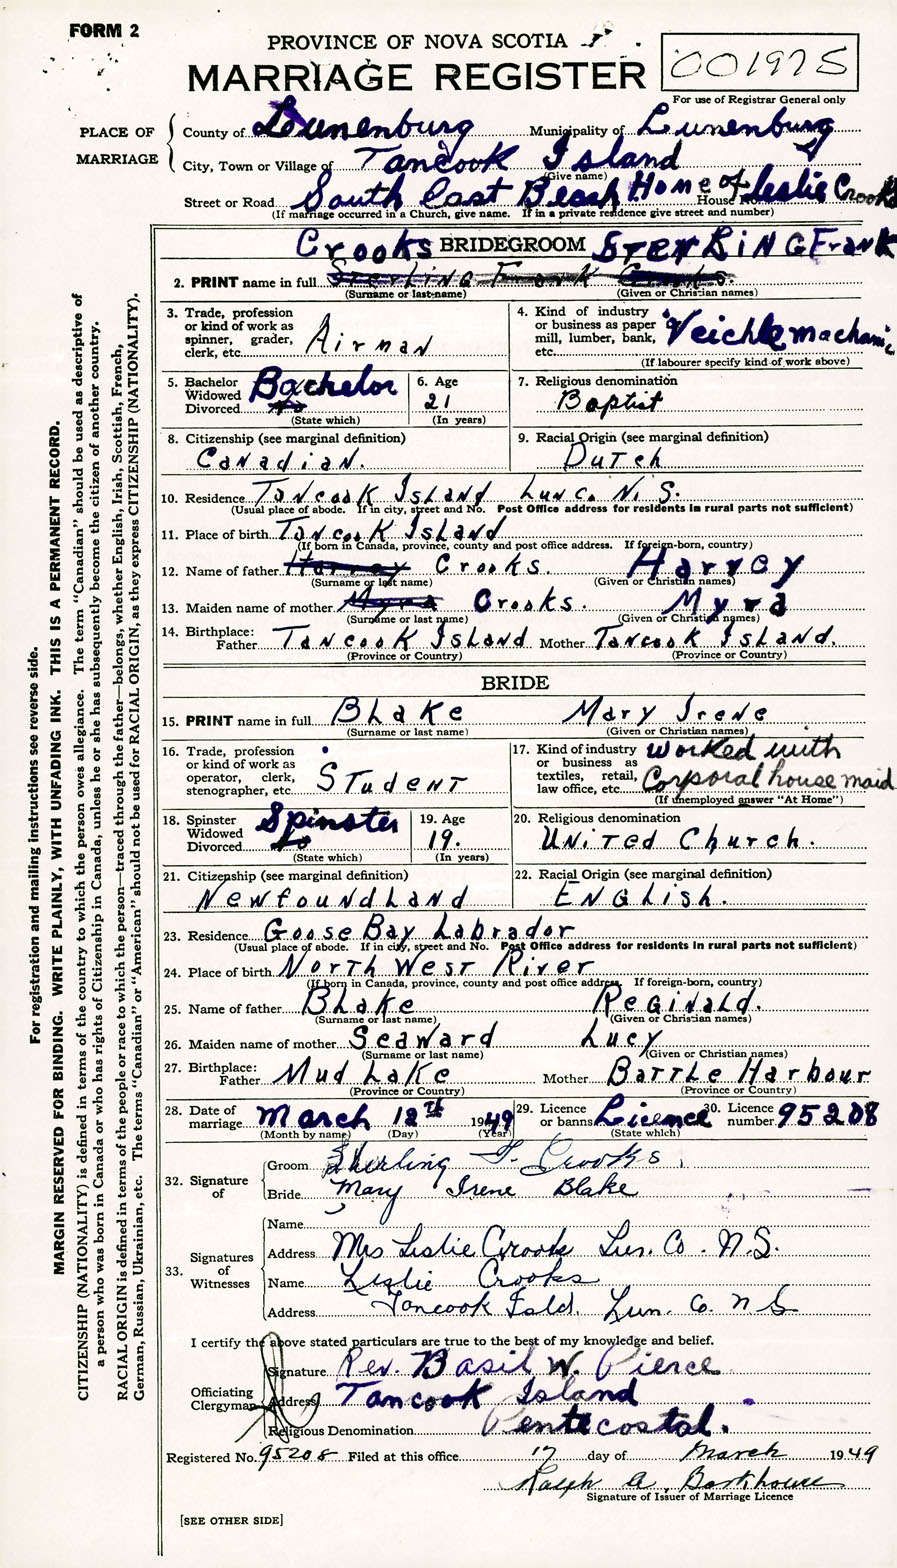 FORM 2
PROVINCE OF NOVA SCOTIA
MARRIAGE REGISTER
001975
For use of Registrar General only
PLACE OF MARRIAGE
County of Lunenburg Municipality of Lunenburg
City, Town or Village of Tancook Island
(Give name)
Street or Road South East Beach Home of Leslie Crooks House No.
(If marriage occurred in a Church, give name. If in a private residence give street and number)
Crooks BRIDEGROOM STERLING Frank
2. PRINT name in full Sterling Frank Crooks.
(Surname or last name) (Given or Christian names)
3. Trade, profession or kind of work as spinner, grader, clerk, etc. Airman
4. Kind of industry or business as paper mill, lumber, bank, etc. Veichle machanic
(If labourer specify kind of work above)
5. Bachelor Widowed Divorced Bachelor
(State which)
6. Age 21
(In years)
7. Religious denomination
Baptist
8. Citizenship (see marginal definition)
Canadian.
9. Racial Origin (see marginal definition)
Dutch
10. Residence Tancook Island Lun. Co. N. S.
(Usual place of abode. If in city, street and No. Post Office address for residents in rural parts not sufficient)
11. Place of birth Tancook Island
(If born in Canada, province, county and post office address. If foreign-born, country)
12. Name of father Harvey Crooks. Harvey
(Surname or last name) (Given or Christian names)
13. Maiden name of mother Myra Crooks. Myra
(Surname or last name) (Given or Christian names)
14. Birthplace: Father Tancook Island Mother Tancook Island.
(Province or Country) (Province or Country)
BRIDE
15. PRINT name in full Blake Mary Irene
(Surname or last name) (Given or Christian names)
16. Trade, profession or kind of work as operator, clerk, stenographer, etc. Student
17. Kind of industry or business as textiles, retail, law office, etc. worked with Corporal house maid
(If unemployed answer "At Home")
18. Spinster Widowed Divorced Spinster
(State which)
19. Age 19.
(In years)
20. Religious denomination
United Church.
21. Citizenship (see marginal definition)
Newfoundland
22. Racial Origin (see marginal definition)
English.
23. Residence Goose Bay Labrador
(Usual place of abode. If in city, street and No. Post Office address for residents in rural parts not sufficient)
24. Place of birth North West River
(If born in Canada, province, county and post office address. If foreign-born, country)
25. Name of father Blake Reginald.
(Surname or last name) (Given or Christian names)
26. Maiden name of mother Seaward Lucy
(Surname or last name) (Given or Christian names)
27. Birthplace: Father Mud Lake Mother Battle Harbour
(Province or Country) (Province or Country)
28. Date of marriage March 12th 1949
(Month by name) (Day) (Year)
29. Licence or banns Licence
(State which)
30. Licence number 95208
32. Signature of
Groom Sterling F. Crooks.
Bride Mary Irene Blake
33. Signatures of Witnesses
Name
Address Mrs Leslie Crooks Lun. Co. N.S.
Name Leslie Crooks
Address Tancook Isld. Lun. Co. N S
I certify the above stated particulars are true to the best of my knowledge and belief.
Officiating Clergyman
Signature Rev. Basil W. Pierce
Address Tancook Island
Religious Denomination Pentecostal.
Registered No. 95208 Filed at this office 17 day of March 1949
Ralph A. Barkhouse
Signature of Issuer of Marriage Licence
[SEE OTHER SIDE]
For registration and mailing instructions see reverse side.
MARGIN RESERVED FOR BINDING. WRITE PLAINLY, WITH UNFADING INK. THIS IS A PERMANENT RECORD.
CITIZENSHIP (NATIONALITY) is defined in terms of the country to which the person owes allegiance. The term "Canadian" should be used as descriptive of
a person who was born in Canada or who has rights of Citizenship in Canada, unless he or she has subsequently become the citizen of another country.
RACIAL ORIGIN is defined in terms of the people or race to which the person—traced through the father—belongs, whether English, Irish, Scottish, French,
German, Russian, Ukrainian, etc. The terms "Canadian" or "American" should not be used for RACIAL ORIGIN, as they express CITIZENSHIP (NATIONALITY).